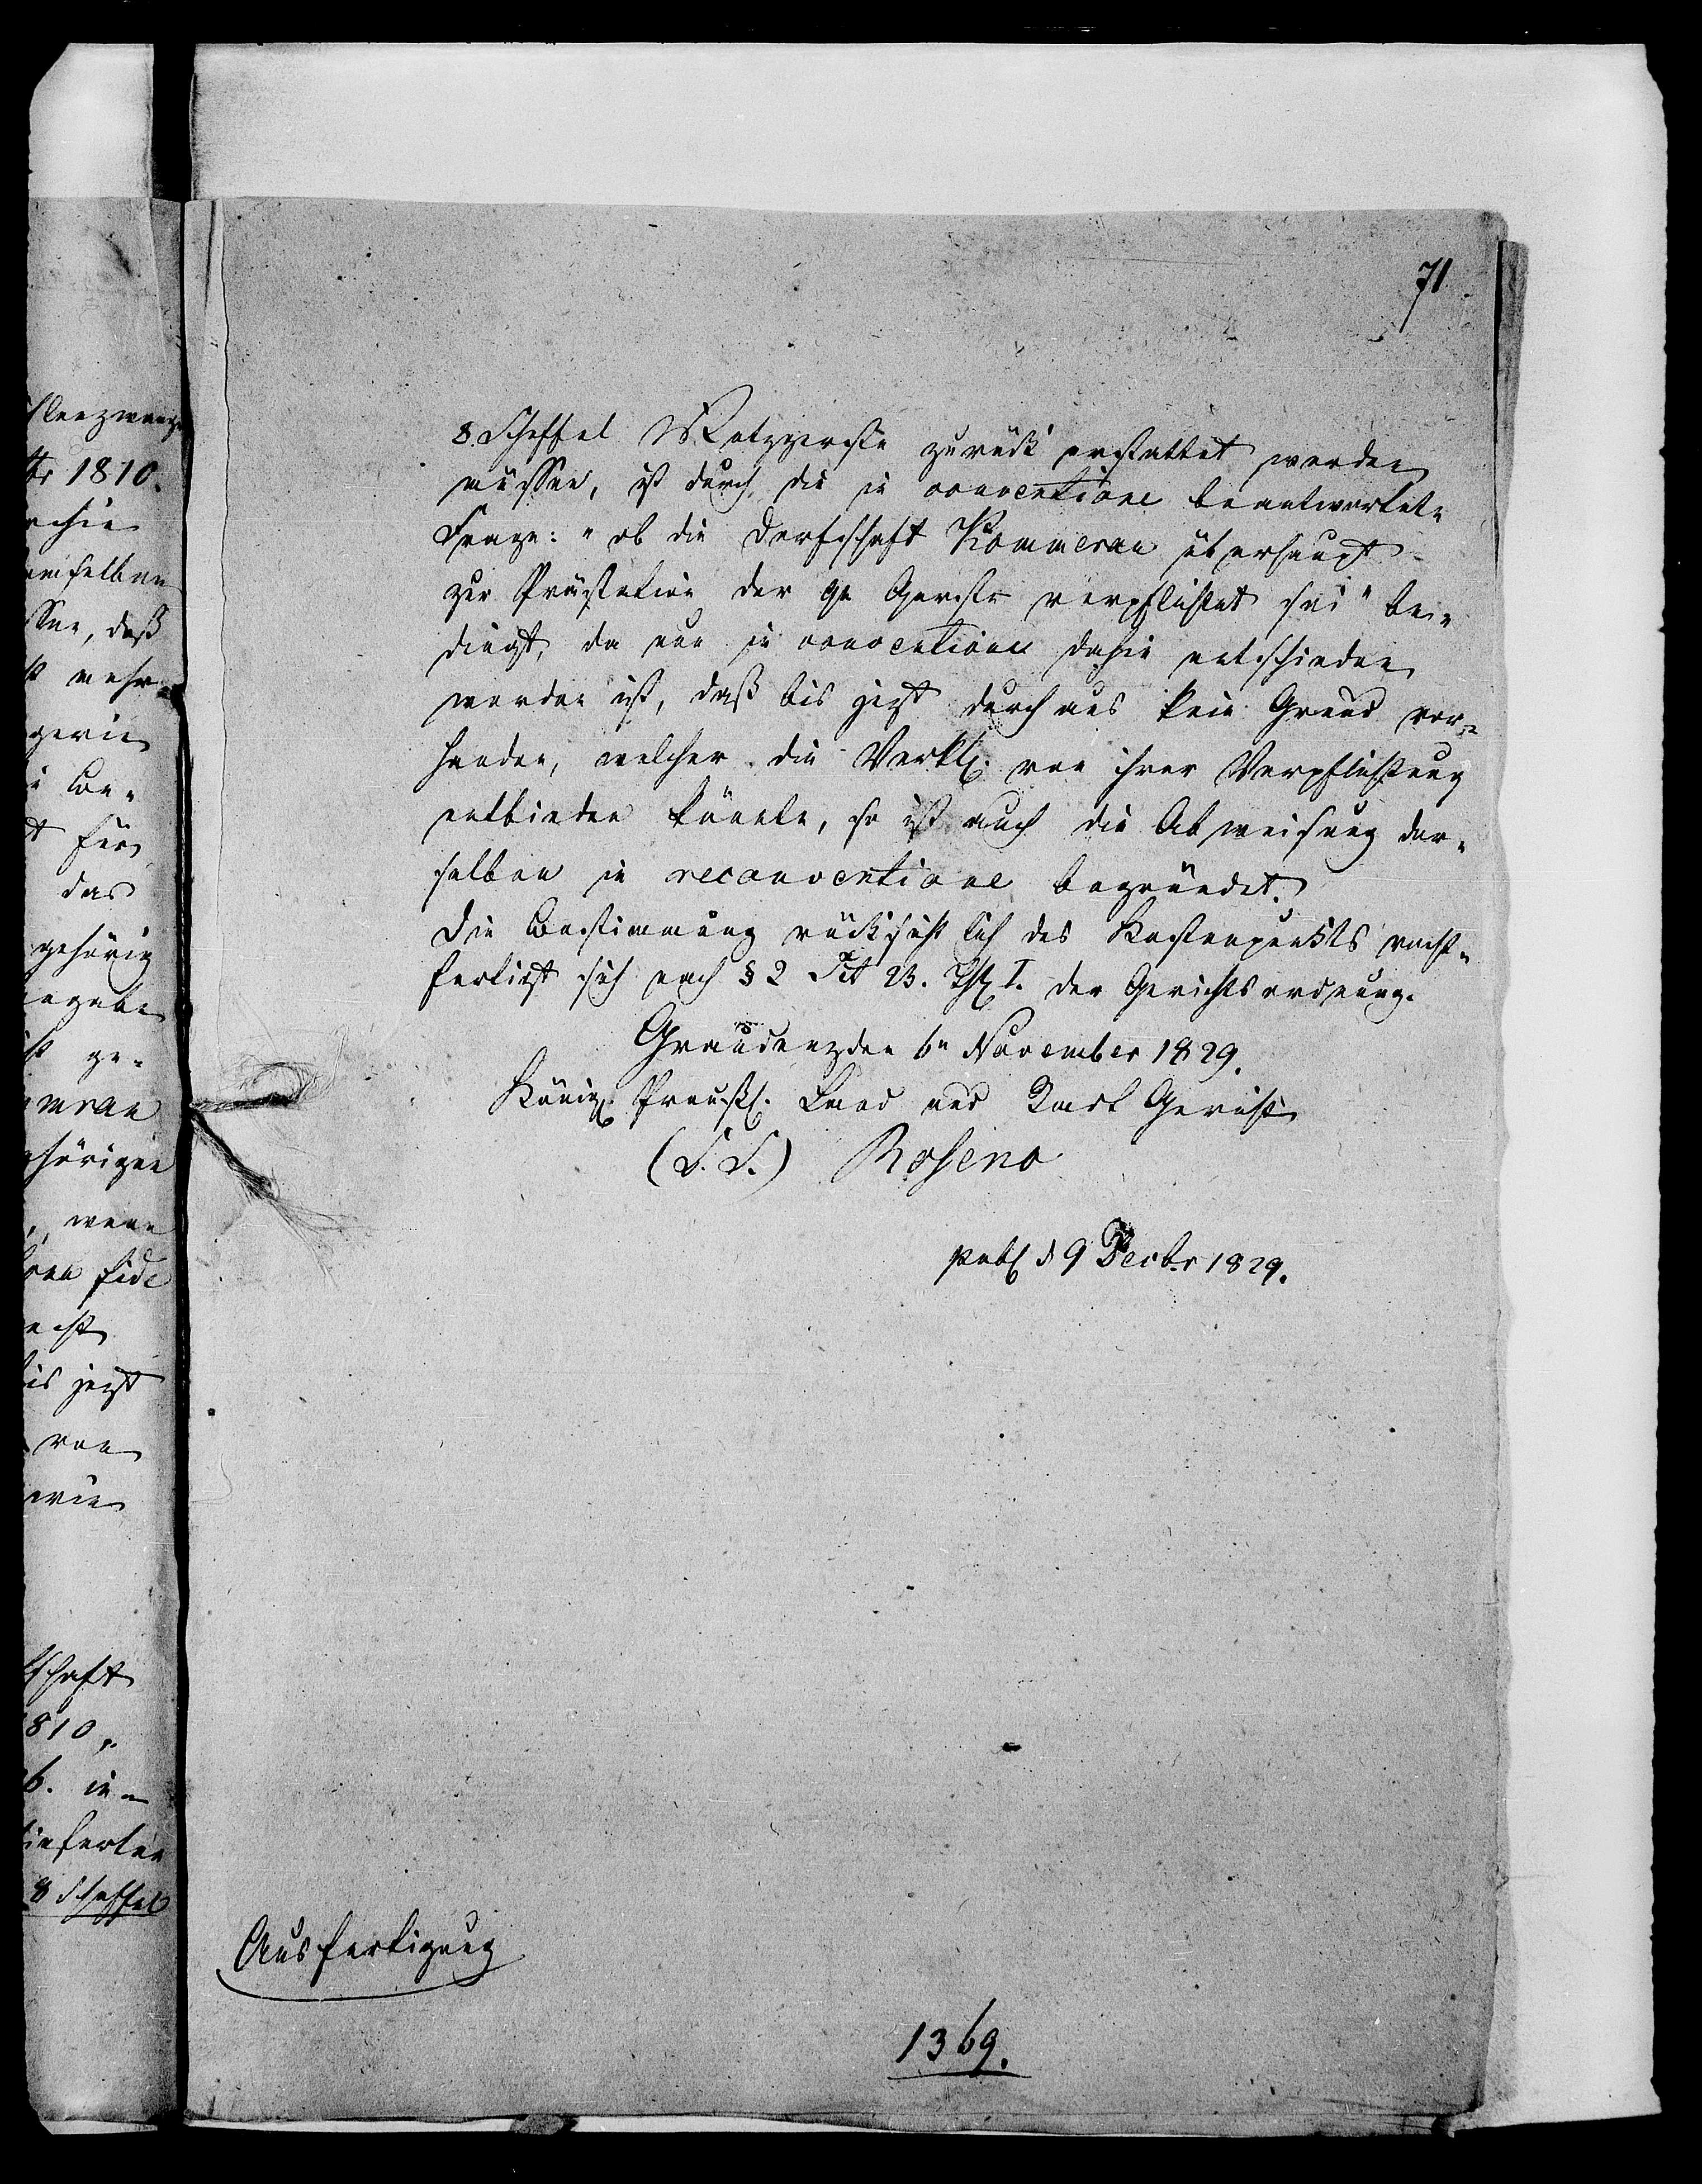 71
8. Scheffel Metzgerste zurück erstattet werden
müssen, ist durch die in conventione beantwortete
Frage: "ob die Dorfschaft Kommerau überhaupt
zur Prästation der qu Gerste verpflichtet sei" be-
dingt, da nun in conventione dahin entschieden
worden ist, daß bis jezt durchaus kein Grund vor-
handen, welcher die Verkl. von ihrer Verpflichtung
entbinden könnte, so ist auch die Abweisung der-
selben in reconventione begründet.
Die Bestimmung rücksichtlich des Kostenpunkts recht-
fertigt sich nach § 2 Tit 23. Thl I. der Gerichtsordnung.
Graudenz den 6n November 1829.
Königl. Preußl. Land und Stadt Gericht
(L. S.) Roseno
publ d 9 Decbr 1829.
Ausfertigung
1369.
tr 1810.
demselben
daß
mehr
für
das
gehörig
ge-
merau
wenn
bona fide
bis jezt
von
schaft
1810,
6. in
8 Scheffel